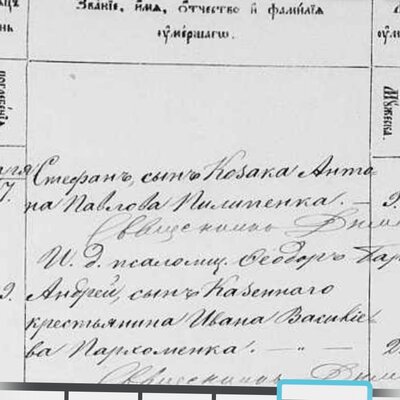 Званіе, имя, отчество и фамилія
умершаго.
погребенія
Мужеска.
7.
Стефанъ, сынъ Козака Анто-
на Павлова Пилипенка. —
Священникъ
И. д. псаломщ. Ѳеодоръ
9.
Андрей, сынъ Казеннаго
крестьянина Ивана Василіе-
ва Пархоменка. — „ —
2.
Священникъ